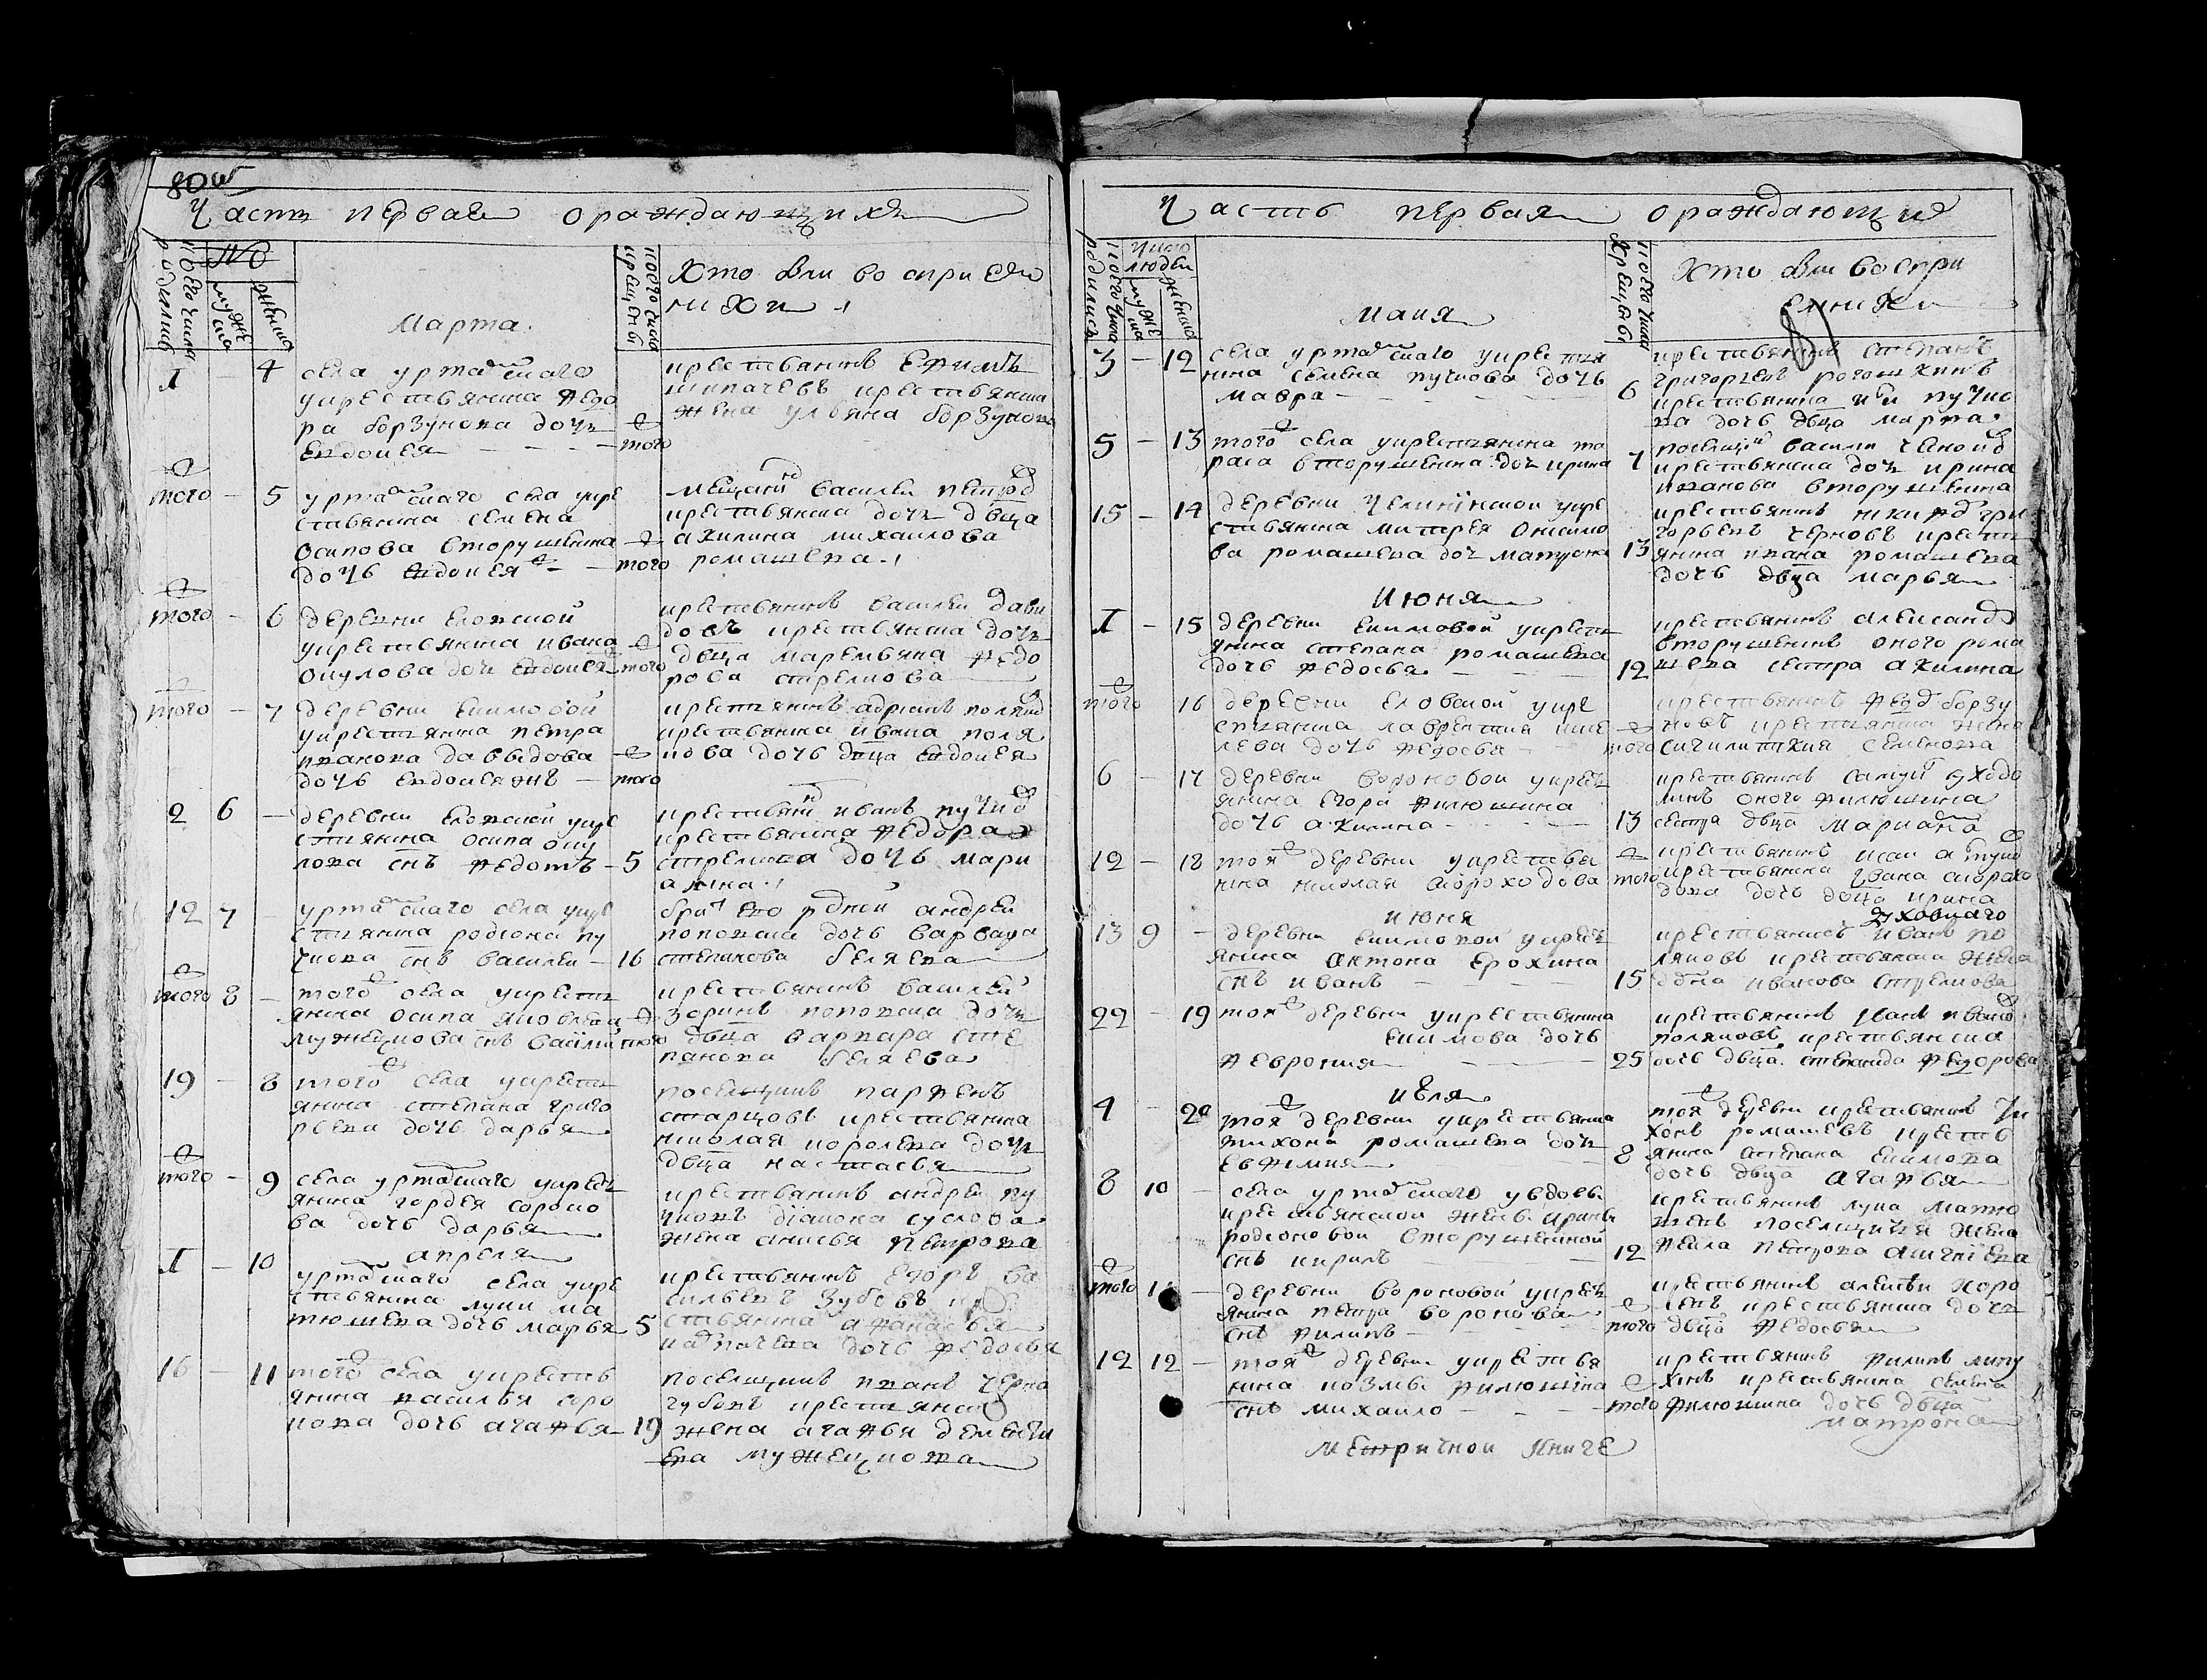 80 об
Часть первая о раждающихся
коего числа родились
№
мужеска
женска
Марта
коего числа крещены
Хто были восприем
ники
1 – 4 села уртамскаго
у крестьянина Федо
ра борзунова дочь
Евдокея – – – того
крестьянинъ Ефимъ
шипачевъ крестьянина
жена ульяна борзунова
того – 5 уртамскаго села у кре
стьянина семена
осипова вторушенина
дочь Евдокея – того
мещанин василеи петров
крестьянска дочь двца
акилина михаилова
ромашева
того – 6 деревни Еловской
у крестьянина ивана
окулова дочь Евдокея того
крестьянинъ василеи давы
довъ крестьянина дочь
двца маремьяна Федо
рова стрелкова
того – 7 деревни Екимовой
у крестьянина петра
иванова давыдова
дочь Евдокея жъ – того
крестьянинъ адрианъ поляков
крестьянина ивана поля
кова дочь двца Евдокея
2 6 – деревни Еловской у кре
стьянина осипа оку
лова снъ Федотъ – 5
крестьянин иванъ пучков
крестьянина Федора
стрелкова дочь мари
амна
12 7 уртамскаго села у кре
стьянина родиона пу
чкова снъ василеи – 16
брат Его родной андреи
поповска дочь варвара
степанова беляева
того 8 – того села у крест
янина осипа яковлева
мунежкова снъ василии того
крестьянинъ василеи
зоринъ поповска дочь
двца варвара сте
панова беляева
19 – 8 того села у крест
янина степана григо
рьева дочь дарья
поселщикъ парфенъ
старцовъ крестьянина
николая королева дочь
двца настасья
того – 9 села уртамскаго у крест
янина гордея сороко
ва дочь дарья
крестьянинъ андреи пу
чковъ диакона суслова
жена анисья петрова
апреля
1 – 10 уртамскаго села у кре
стьянина луки ма
тюшева дочь марья 5
крестьянинъ Егоръ ва
сильевъ зубовъ кре
стьянина афанасья
дочь Федосья
16 – 11 того села у крестья
янина василья соро
кова дочь агафья 19
поселщикъ иванъ черно
губовъ крестьянска
жена агафья дементи
ева
Часть первая о раждающихся
коего числа родились
число людеи
мужеска
женска
маия
коего числа крещены
Хто были воспри
емники
81
3 – 12 села уртамскаго у крестья
нина семена пучкова дочь
мавра – – – – 6
крестьянинъ степанъ
григорьевъ рогожкинъ
крестьянина пучко
ва дочь двца марфа
5 – 13 того села у крестьянина та
раса вторушенина дочь ирина 7
поселщик василии
крестьянска дочь ирина
иванова вторушенина
15 – 14 деревни у кре
стьянина митрея онисимо
ва ромашева доч матрона 13
крестьянинъ никиф гри
горьевъ черновъ крест
янина ивана ромашева
дочь двца марья
Июня
1 – 15 деревни Екимовой у крест
янина степана ромашева
дочь Федосья – – – 12
крестьянинъ александр
вторушенинъ оного рома
шева сестра акилина
того 16 деревни Еловской у кре
стьянина лаврентия
лева дочь Федосья – того
крестьянинъ Федор борзу
новъ крестьянина жена
семенова
6 – 17 деревни вороновой у крест
янина Егора Филюшина
дочь акилина – – – 13
крестьянинъ
оного Филюшина
сестра двца мариана
12 – 18 тоя деревни у крестья
нина николая скороходова того
крестьянинъ
крестьянина ивана скорохо
дова дочь двца ирина
июня
13 9 – деревни Екимовой у крест
янина антона Ерохина
снъ иванъ – – – 15
крестьянинъ иванъ по
ляковъ крестьянска жена
иванова стрелкова
22 – 19 тоя деревни у крестьянина
Екимова дочь
Феврония – – – 25
крестьянинъ иванов
поляковъ крестьянска
дочь двца степанида Федорова
июля
4 – 20 тоя деревни у крестьянина
тихона ромашева дочь
Евфимия – – 8
тоя деревни крестьянинъ ти
хонъ ромашевъ крестья
янина степана Екимова
дочь двца агафья
8 10 – села уртамскаго у вдовы
крестьянской жены арины
родионовой вторушениной
снъ кирилъ – – 12
крестьянинъ лука матю
шевъ поселщичья жена
петрова
того 11 – деревни вороновой у крест
янина петра воронова
снъ Филипъ – – – того
крестьянинъ алексеи
крестьянина дочь
двца Федосья
12 12 – тоя деревни у крестья
нина козмы Филюшина
снъ михаило – – – того
крестьянинъ Филипъ
крестьянина семена
Филюшина дочь двца
матрона
метричной книге